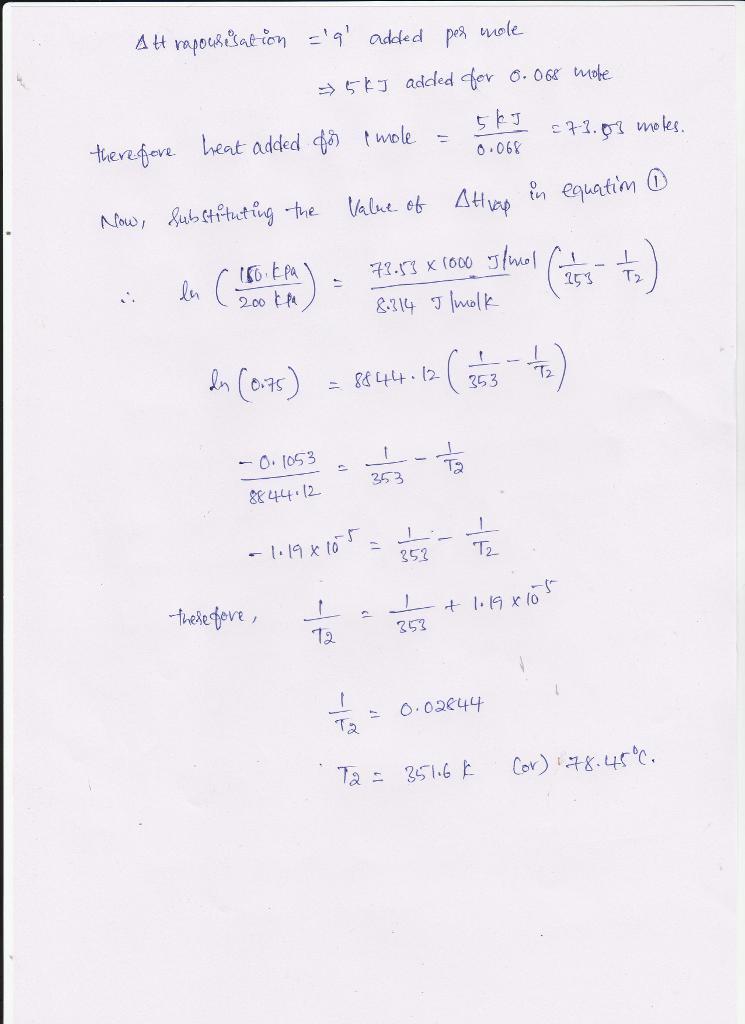 ΔH vapourisation = 'q' added per mole
⇒ 5 kJ added for 0.068 mole
therefore heat added for 1 mole = 5 kJ / 0.068 = 73.53 moles.
Now, Substituting the Value of ΔHvap in equation ①
∴ ln (150. kPa / 200 kPa) = 73.53 x 1000 J/mol / 8.314 J/molk (1/353 - 1/T2)
ln (0.75) = 8844.12 (1/353 - 1/T2)
- 0.1053 / 8844.12 = 1/353 - 1/T2
- 1.19 x 10^-5 = 1/353 - 1/T2
therefore, 1/T2 = 1/353 + 1.19 x 10^-5
1/T2 = 0.02844
T2 = 351.6 k (or) 78.45°C.